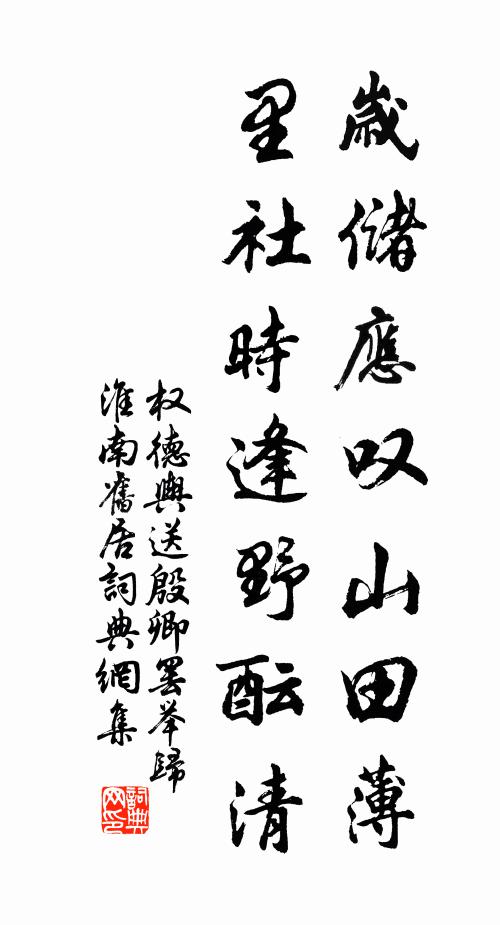 歲儲應叹山田薄
里社時逢野酝清
权德輿送殷卿罢举歸
淮南舊居詞典網集
詞典网印